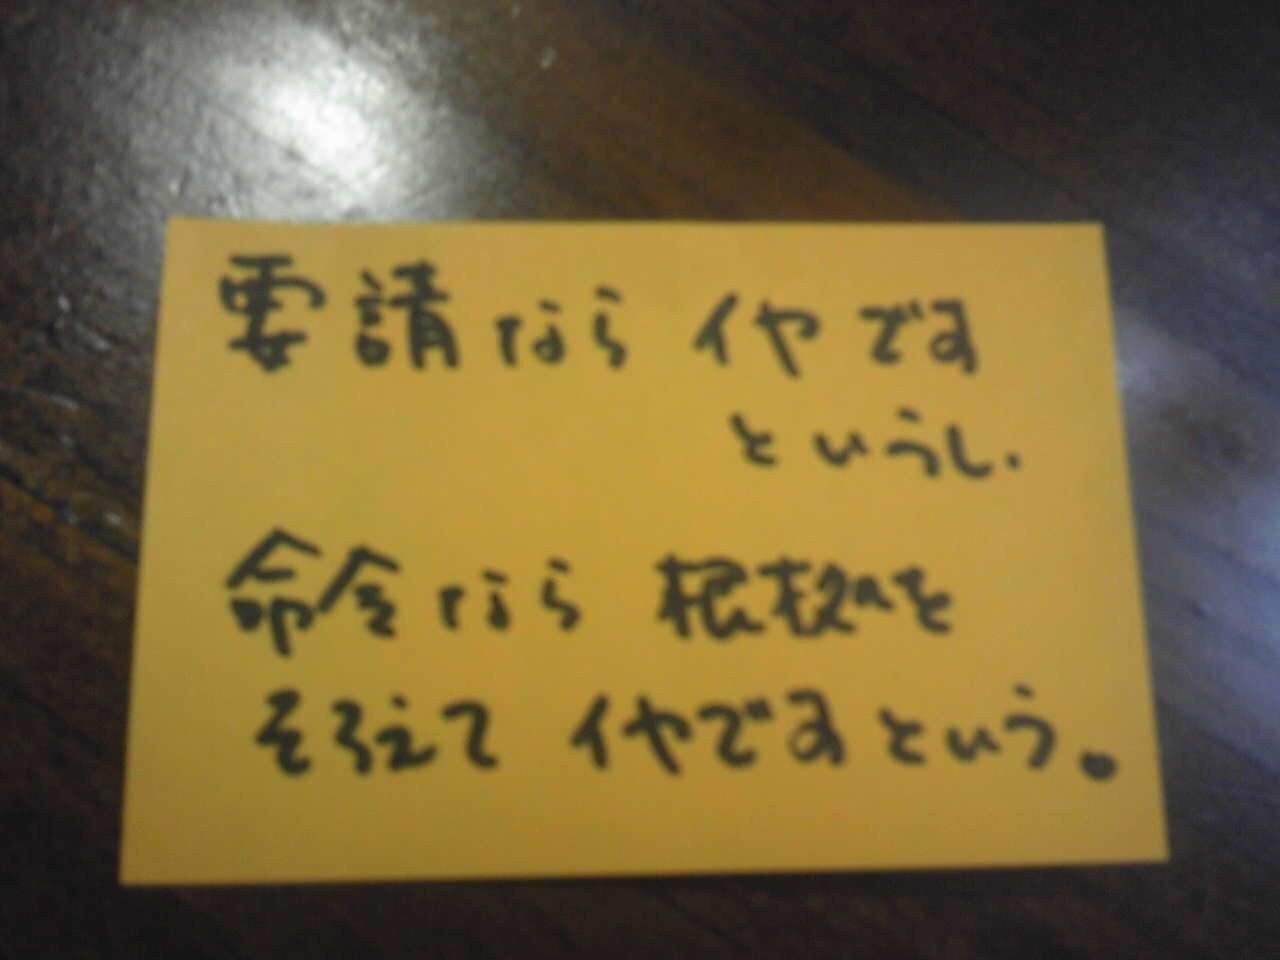 要請なら イヤです
というし、
命令なら 根拠を
そろえて イヤですという。